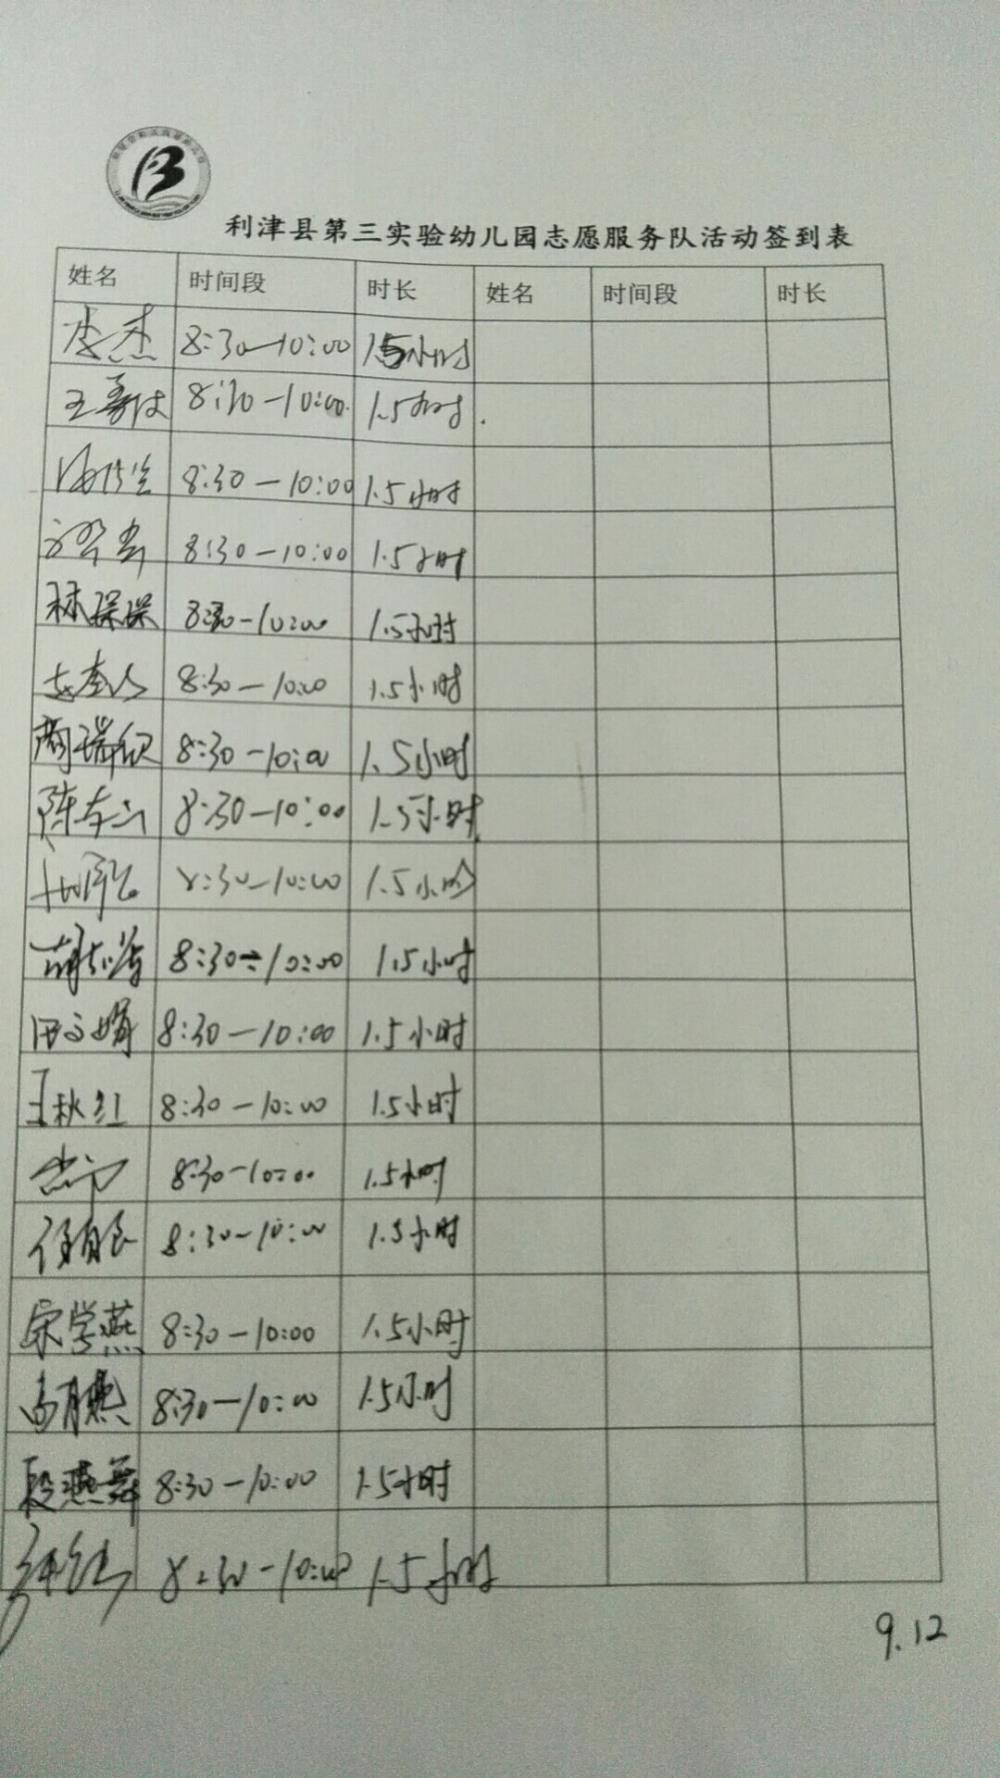 利津县第三实验幼儿园志愿服务队活动签到表
姓名 时间段 时长 姓名 时间段 时长
李杰 8:30—10:00 1.5小时
王 8:30—10:00 1.5小时
8:30—10:00 1.5小时
8:30—10:00 1.5小时
林琛琛 8:30—10:00 1.5小时
8:30—10:00 1.5小时
商瑞欣 8:30—10:00 1.5小时
陈 8:30—10:00 1.5小时
8:30—10:00 1.5小时
8:30—10:00 1.5小时
田文娟 8:30—10:00 1.5小时
王秋红 8:30—10:00 1.5小时
8:30—10:00 1.5小时
8:30—10:00 1.5小时
宋学燕 8:30—10:00 1.5小时
高月燕 8:30—10:00 1.5小时
段燕舞 8:30—10:00 1.5小时
8:30—10:00 1.5小时
9.12